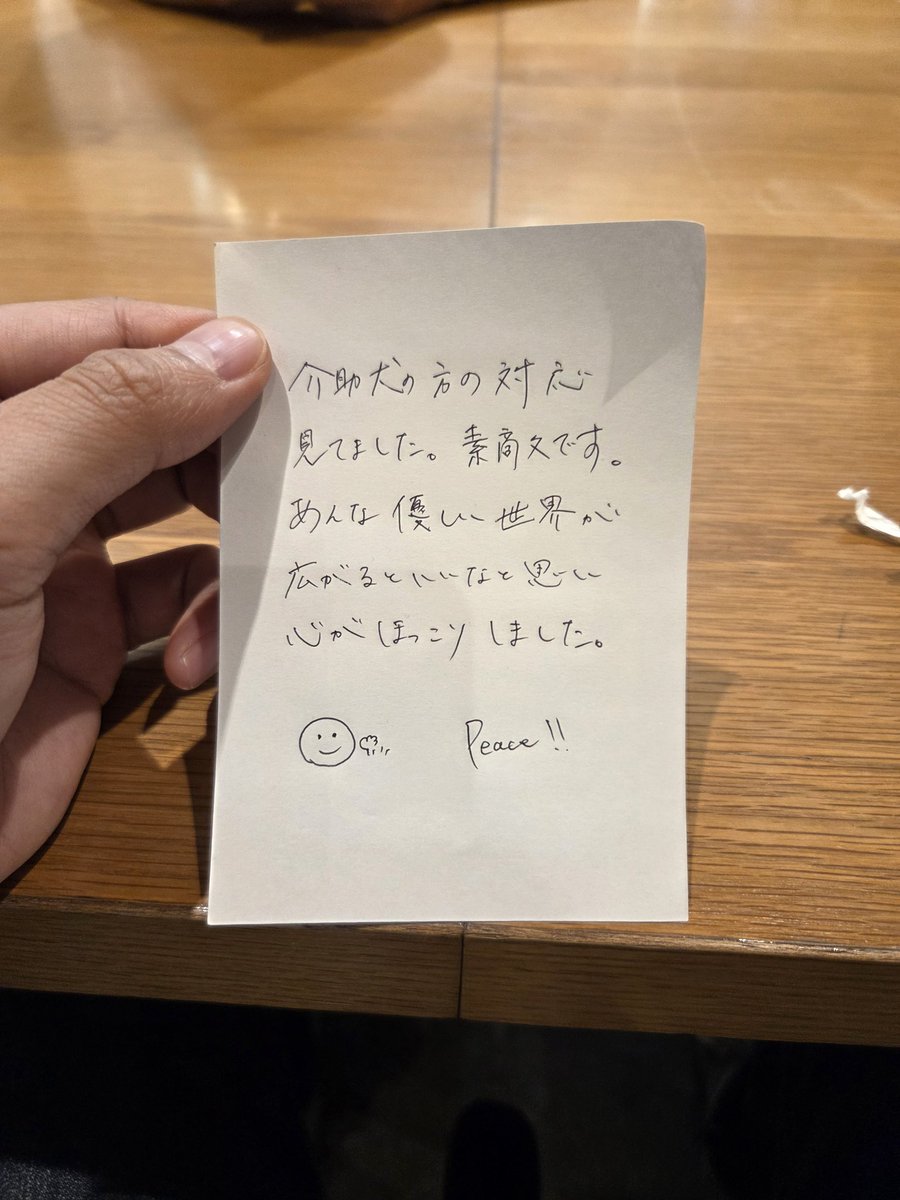 介助犬の方の対応
見てました。素商文です。
あんな優しい世界が
広がるといいなと思い
心がほっこりしました。
Peace!!